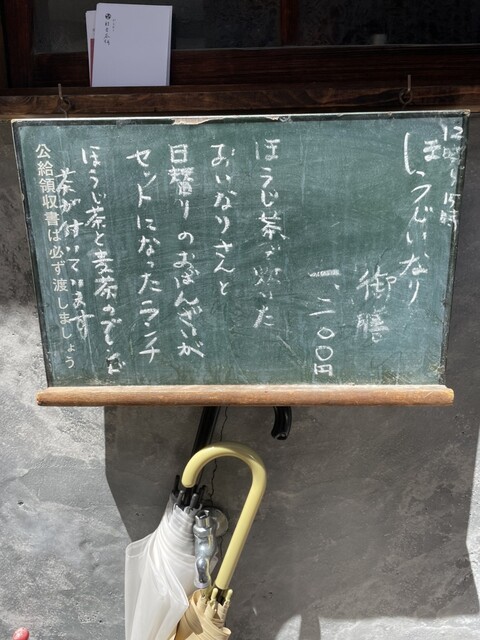 12時〜15時
ほうじいなり
御膳
一、二〇〇円
ほうじ茶で炊いた
おいなりさんと
日替りのおばんざいが
セットになったランチ
ほうじ茶と麦茶の
茶が付いています
公給領収書は必ず渡しましょう